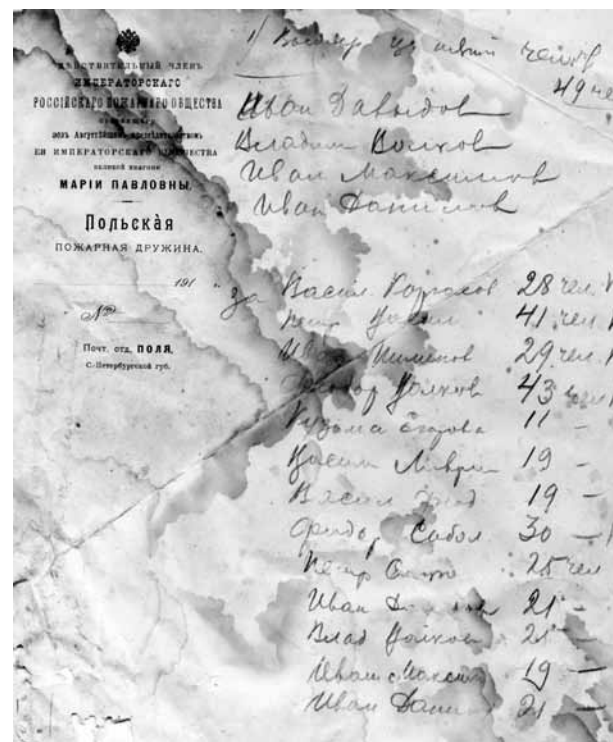 ДѢЙСТВИТЕЛЬНЫЙ ЧЛЕНЪ
ИМПЕРАТОРСКАГО
РОССІЙСКАГО ПОЖАРНАГО ОБЩЕСТВА
состоящаго
подъ Августѣйшимъ предсѣдательствомъ
ЕЯ ИМПЕРАТОРСКАГО ВЫСОЧЕСТВА
великой княгини
МАРІИ ПАВЛОВНЫ.
Польская
ПОЖАРНАЯ ДРУЖИНА.
191 "
№
Почт. отд. ПОЛЯ,
С.-Петербургской губ.
1/ 
49 че
Иван Давыдов
Владим Волков
Иван Максимов
Иван Данилов
за Васил 28 чел.
Петр 41 чел
Иван Пименов 29 чел.
Федор Волков 43 чел
Кузьма Егорова 11 –
Васили Лаврен 19 –
Васили 19 –
Федор Собол 30 –
Петр 25 чел
Иван 21 –
Влад Волков 21 –
Иван Максим 19 –
Иван Данил 21 –